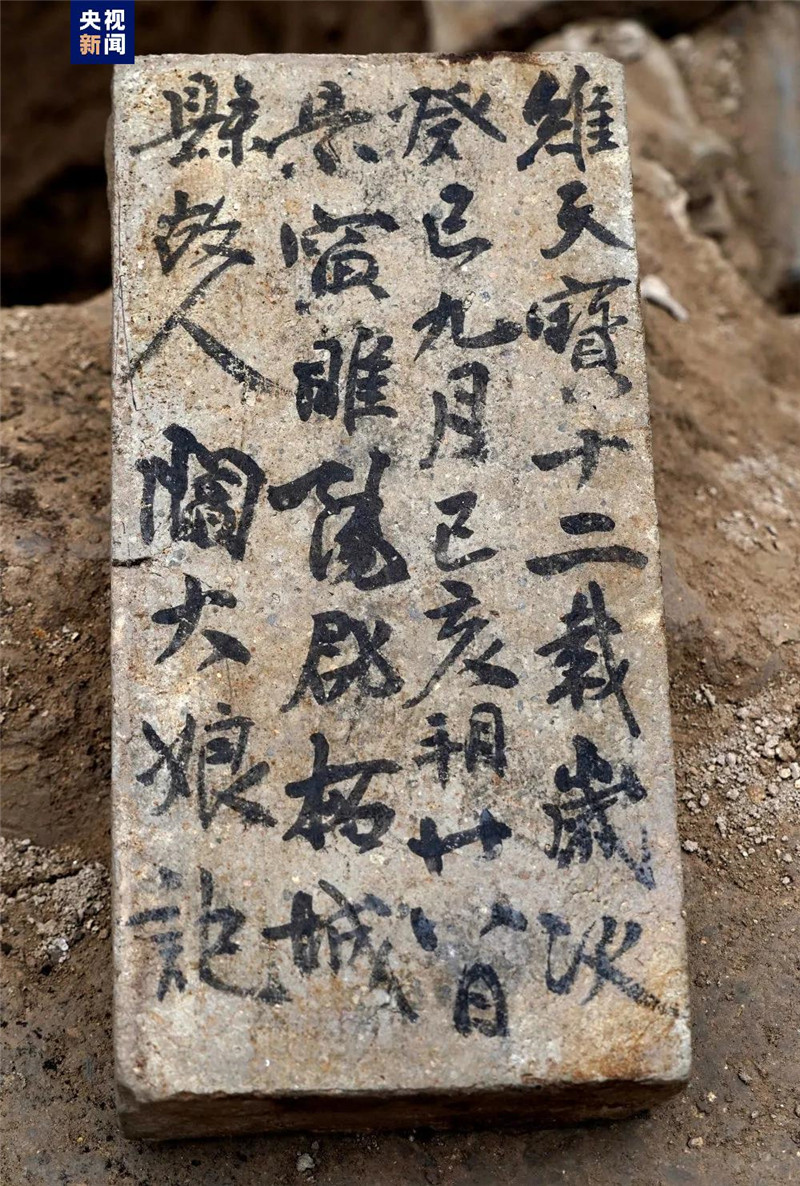 央视
新闻
維天寶十二載歲次
癸巳九月己亥朔廿八日
景寅睢陽郡柘城
縣故人大娘記